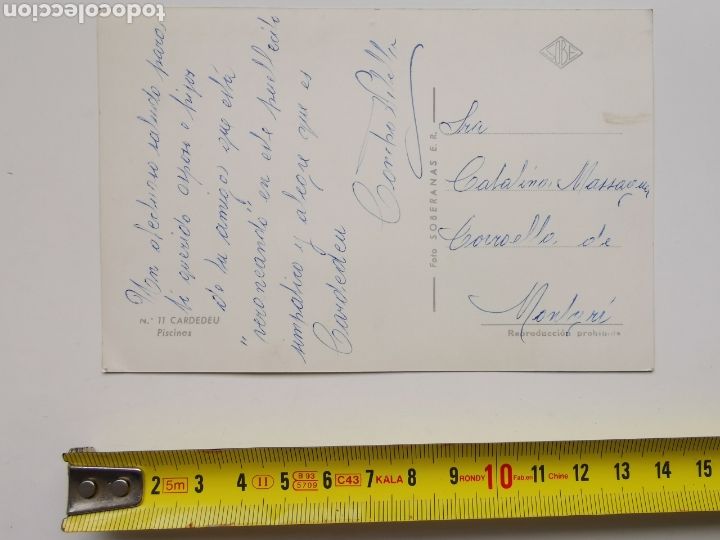 todocoleccion
Un afectuoso saludo para
ti querido esposo e hijos
de tu amiga que está
"veroneando" en este pueblecito
simpático y alegre que es
Cardedeu
SOBE
Foto SOBERANAS E. R.
Sra
Catalina Massaguer
Torroella de
Montgrí
N.º 11 CARDEDEU
Piscinas
Reproducción prohibida
2 5m 3 4 II 5 B 93 5709 6 C43 7 KALA 8 9 RONDY 10 Fab.en 11 Chine 12 13 14 15
todocoleccion